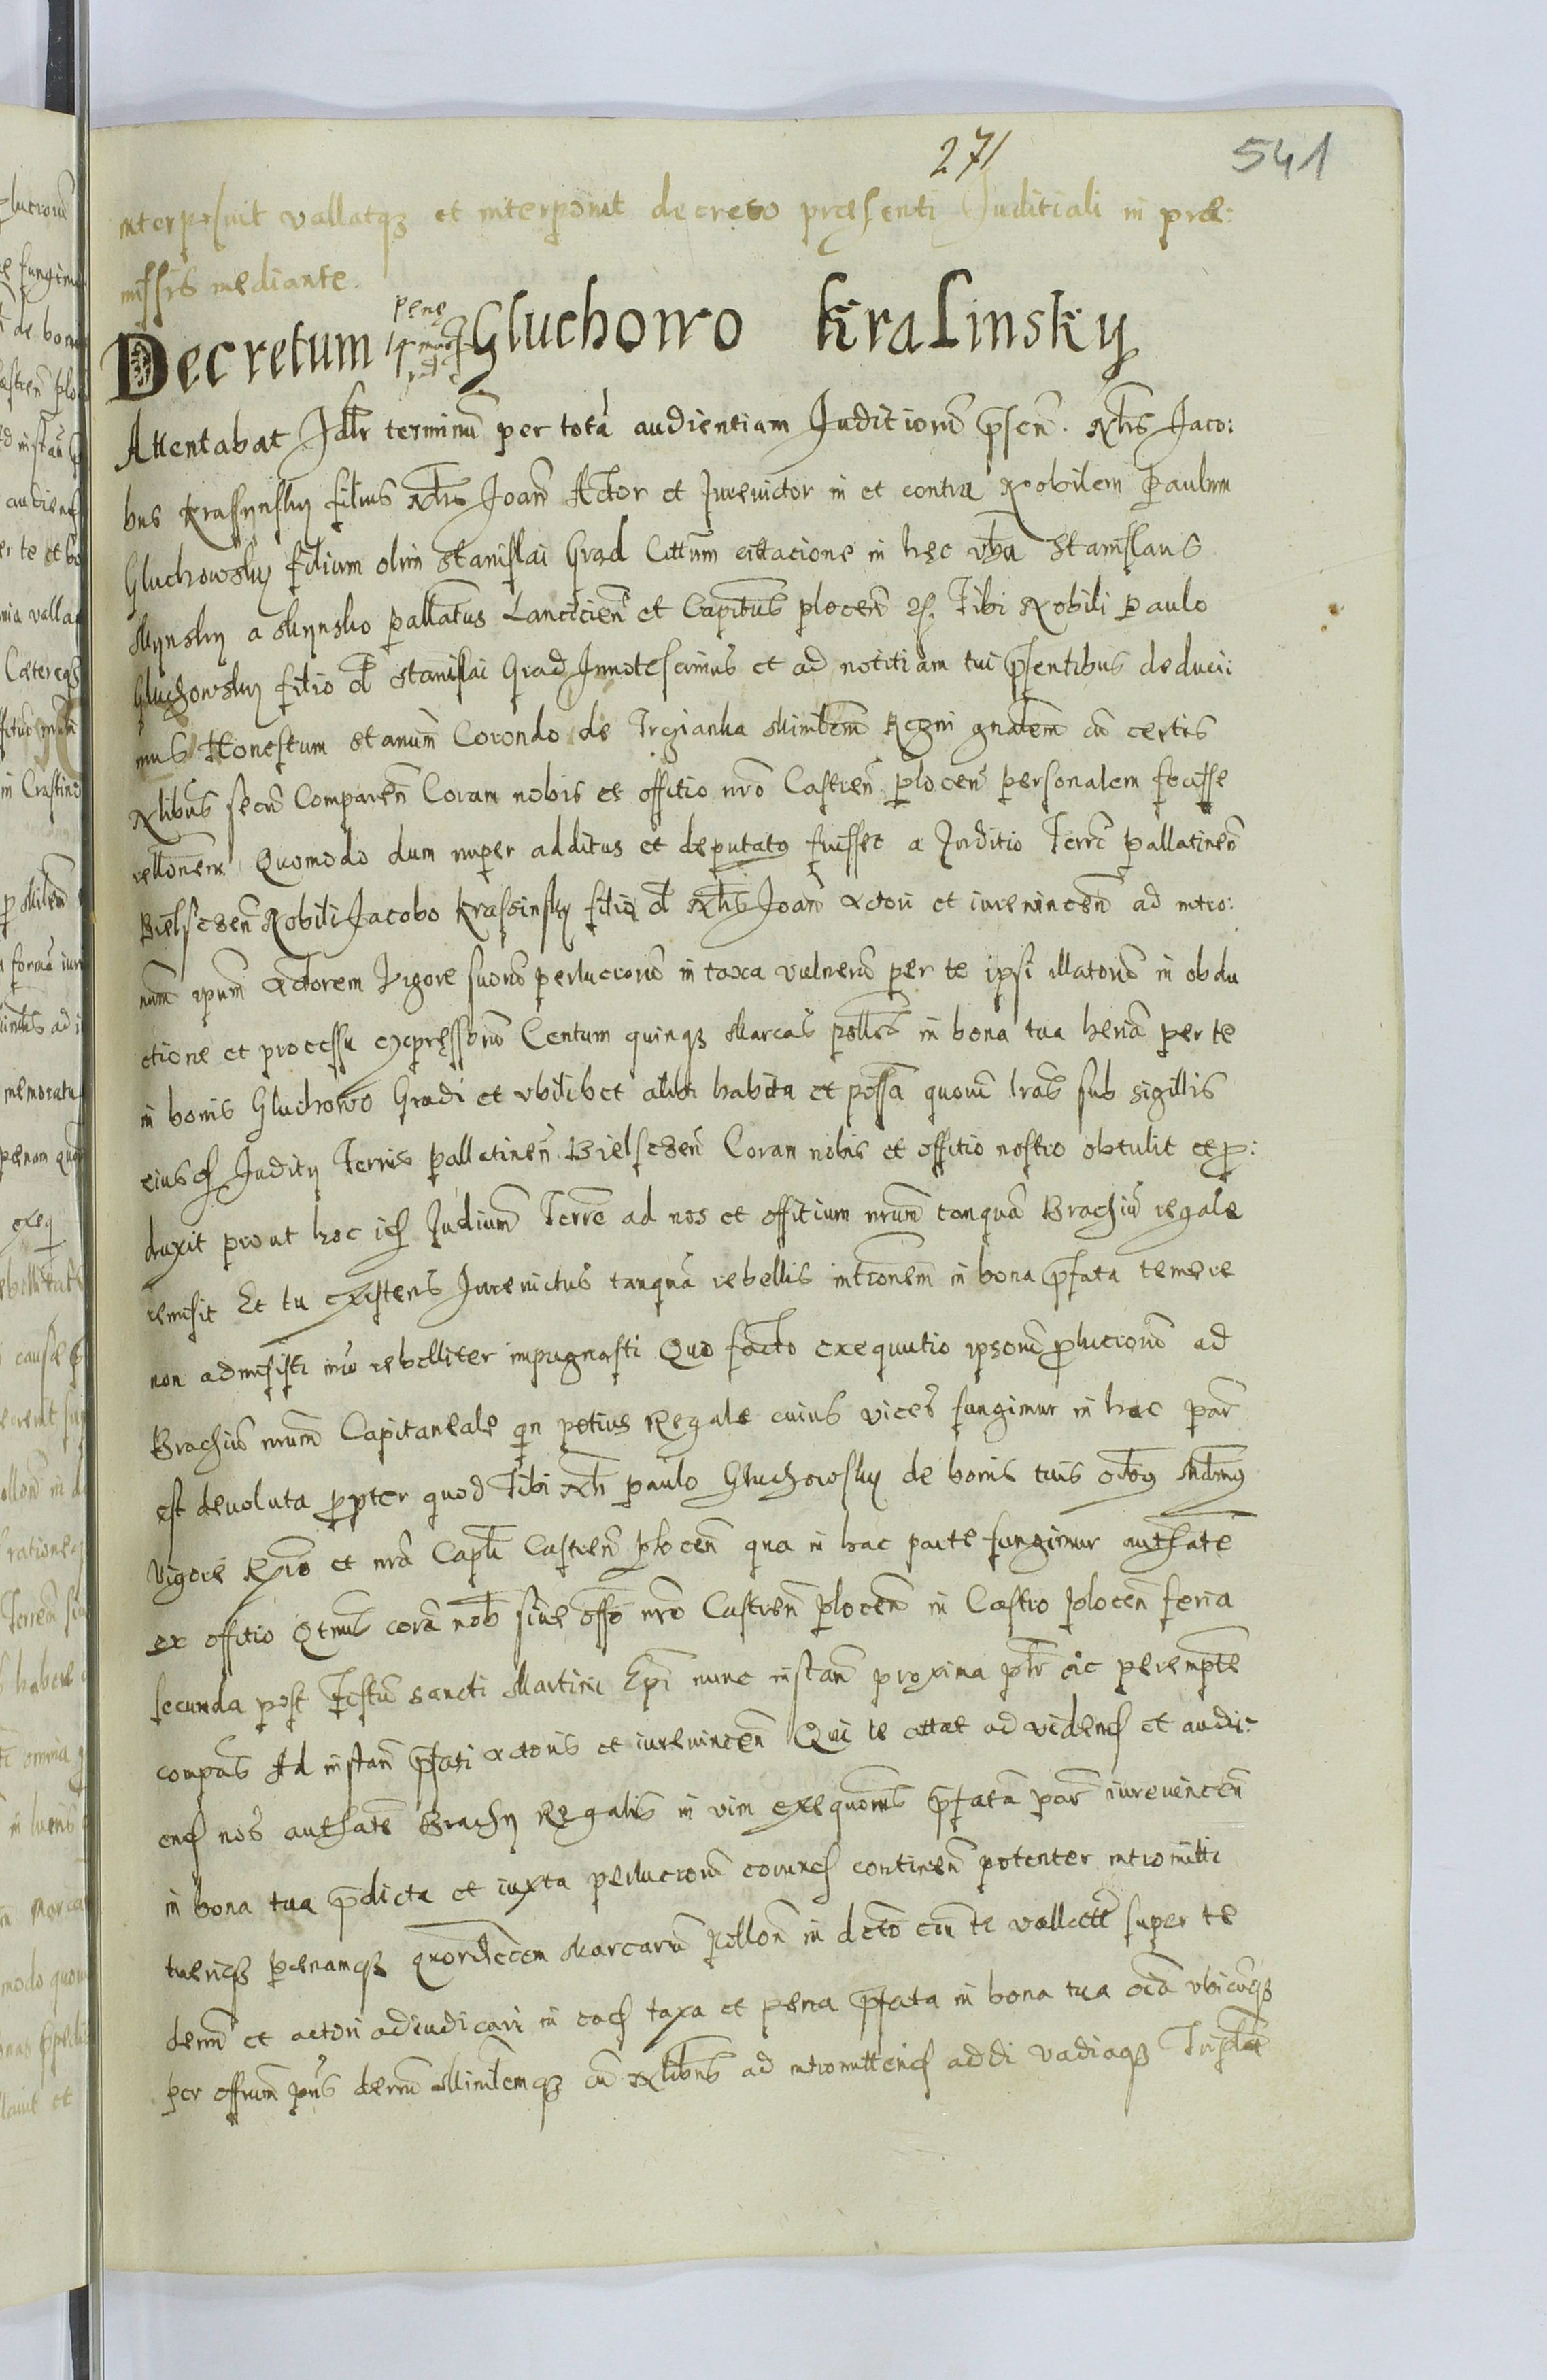 271
541
interposuit vallatqz et interponit decreto præsenti Juditiali in præ:
missis mediante.
Decretum pene 14 marc Gluchowo Krasinsky
Attentabat Jdltr terminū per totā audientiam Juditiorū p̄sen̄. Nbl̄s Jaco:
bus Krassynsky filius Nbl̄is Joan̄ Actor et Jurevictor in et contra Nobilem Paulum
Gluchowsky filium olim Stanislai Grad Cittūm cittacione in hec vba Stanislaus
Mynsky a Mynsko pallatnūs Lancicien̄ et Capitn̄us plocen̄ Tibi Nobili Paulo
Gluchowsky filio ol Stanislai Grad Innotescimus et ad notitiam tui p̄sentibus deduci:
mus Honestum Stanūm Corondo de Trzianka Minilem̄ Regni gnalem̄ cū certis
Nlibūs secū Comparen̄ Coram nobis et offitio nr̄o Castren̄ plocen̄ personalem fecisse
rellonem̄ Quomodo dum nuper additus et deputatg fuisset a Juditio Terr̄i pallatinen̄
Bielscen̄ Nobili Jacobo Krassinsky filio ol Nbl̄is Joan̄ actori et iurevincen̄ ad intro:
num̄ ipum̄ Actorem Vigore suorū perlucrorū in taxa vulnerū per te ipsi illatorū in obdu
ctione et processu expressorū Centum quinqz Marcas polles in bona tua heria per te
in bonis Gluchowo Gradi et vbilibet alibi habita et possa quorū lr̄as sub sigillis
eiusd Juditij Terris pallatinen̄ Bielscen̄ Coram nobis et offitio nostro obtulit et pr:
duxit prout hoc id Judium̄ Terre ad nos et offitium nrum̄ tanquā Brachiū regale
remisit Et tu existens Jurevictus tanquā rebellis intronem̄ in bona p̄fata temere
non admisisti imo rebelliter impugnasti Quo facto exequutio ipsorū plucrorū ad
Brachiū nrum̄ Capitaneale qn potius Regale cuius vices fungimur in hac par̄
est devoluta propter quod Tibi Nbl Paulo Gluchowsky de bonis tuis oibg Mdmg
Vigore Regio et nr̄a Captli Castren̄ plocen̄ qua in hac parte fungimur authate
ex offitio Qtnus corā nob sive offo nr̄o Castren̄ plocen̄ in Castro plocen̄ feria
secunda post Festū sancti Martini Epi nunc instan̄ proxima ptr̄ eic perempte
compas Ad instan̄ p̄fati actoris et iurevincen̄ Qui te cittat ad videnđ et audi:
enđ nos authate Brachij Regalis in vim exequonis p̄fatā par̄ iurevincen̄
in bona tua p̄dicta et iuxta perlucrorū eorunđ continen̄ potenter intromitti
tueriqz penamqz quordecem Marcarū pollon̄ in dcto cun te vallatt super te
demū et actori adiudicari in eađ taxa et pena p̄fata in bona tua oia vbicūqz
per offnum p̄ns demū Minilemqz cū Nlibus ad intromittenđ addi vadiaqz Tripla